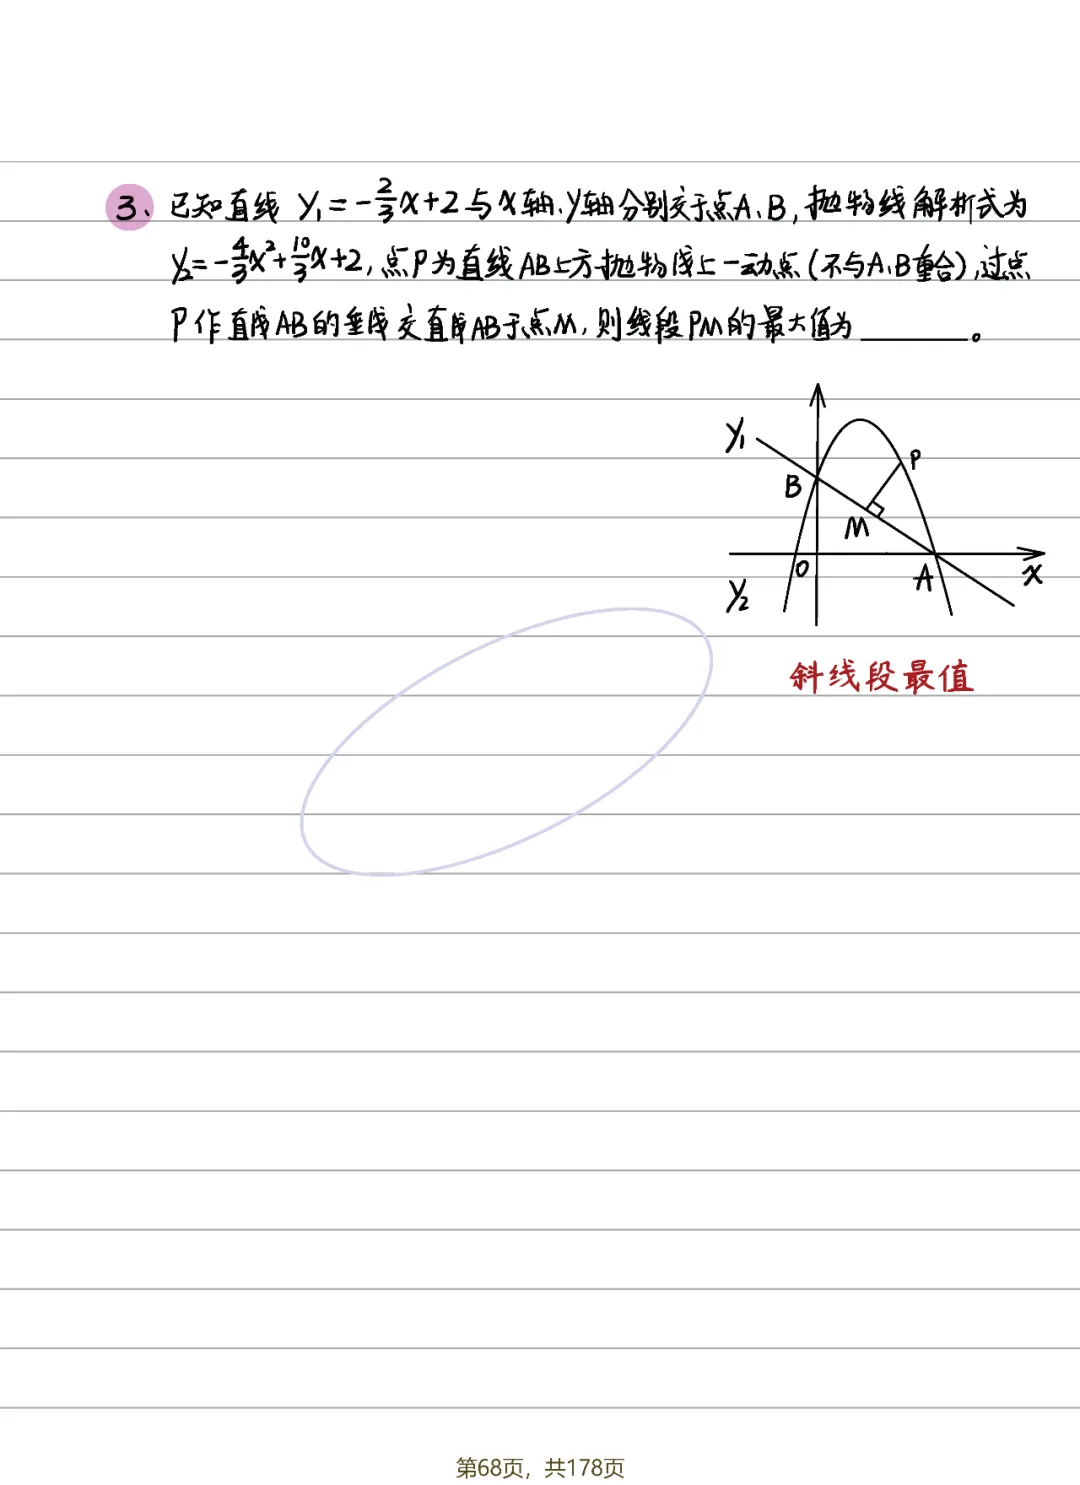 3、已知直线 y₁=-2/3x+2与x轴、y轴分别交于点A、B,抛物线解析式为
y₂=-4/3x²+10/3x+2,点P为直线AB上方抛物线上一动点(不与A、B重合),过点
P作直线AB的垂线交直线AB于点M,则线段PM的最大值为______。
y₁
P
B
M
O
A
x
y₂
斜线段最值
第68页，共178页